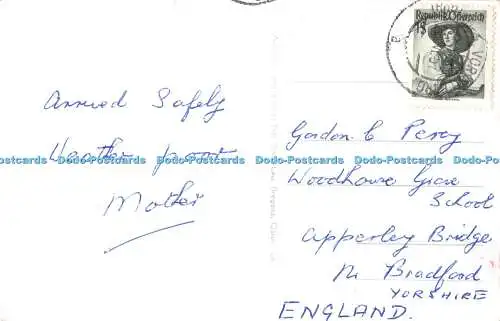 Arrived Safely
Weather poor
Mother
Republik Österreich
1S
Gordon C Percy
Woodhouse Grove
School
Apperley Bridge
Nr Bradford
YORSHIRE
ENGLAND.
Dodo-Postcards Dodo-Postcards Dodo-Postcards Dodo-Postcards Dodo-Postcards Dodo-Postcards